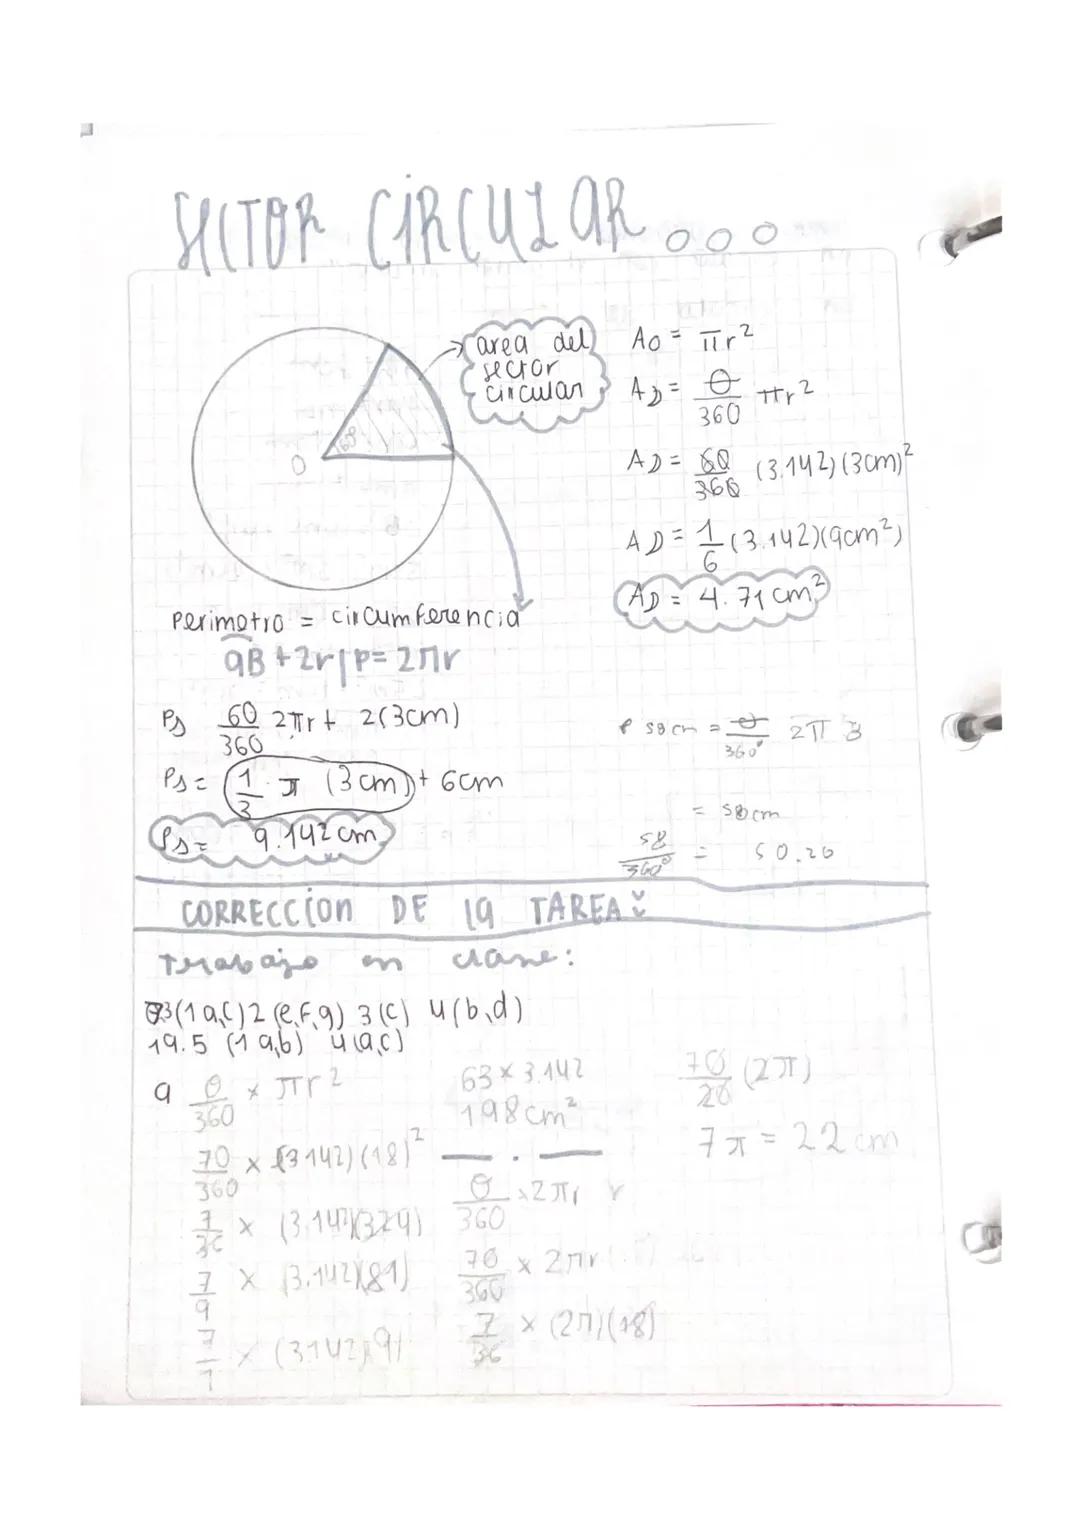 SECTOR CIRCULAR...
area del
sector
circular
60°
O
A○ = πr²
AD = θ/360 πr²
AD = 60/360 (3.142)(3cm)²
AD = 1/6 (3.142)(9cm²)
AD = 4.71 cm²
Perimetro = circumferencia
aB + 2r | P = 2πr
Ps 60/360 2πr + 2(3cm)
Ps = 1/3 π (3cm) + 6cm
Ps = 9.142 cm
58cm = θ/360° 2π 3
= 58cm
58/360° = 50.26
CORRECCION DE la TAREA
Trabajo en clase:
(1 a,c) 2 (e,f,g) 3 (c) 4 (b,d)
19.5 (1 a,b) 4 (a,c)
a θ/360 × πr²
70/360 × (3.142)(18)²
7/36 × (3.142)(324)
7/9 × (3.142)(81)
7/1 × (3.142)9
63 × 3.142
198 cm²
θ/360 × 2πr
70/360 × 2πr
7/36 × (2π)(18)
70/20 (2π)
7π = 22 cm